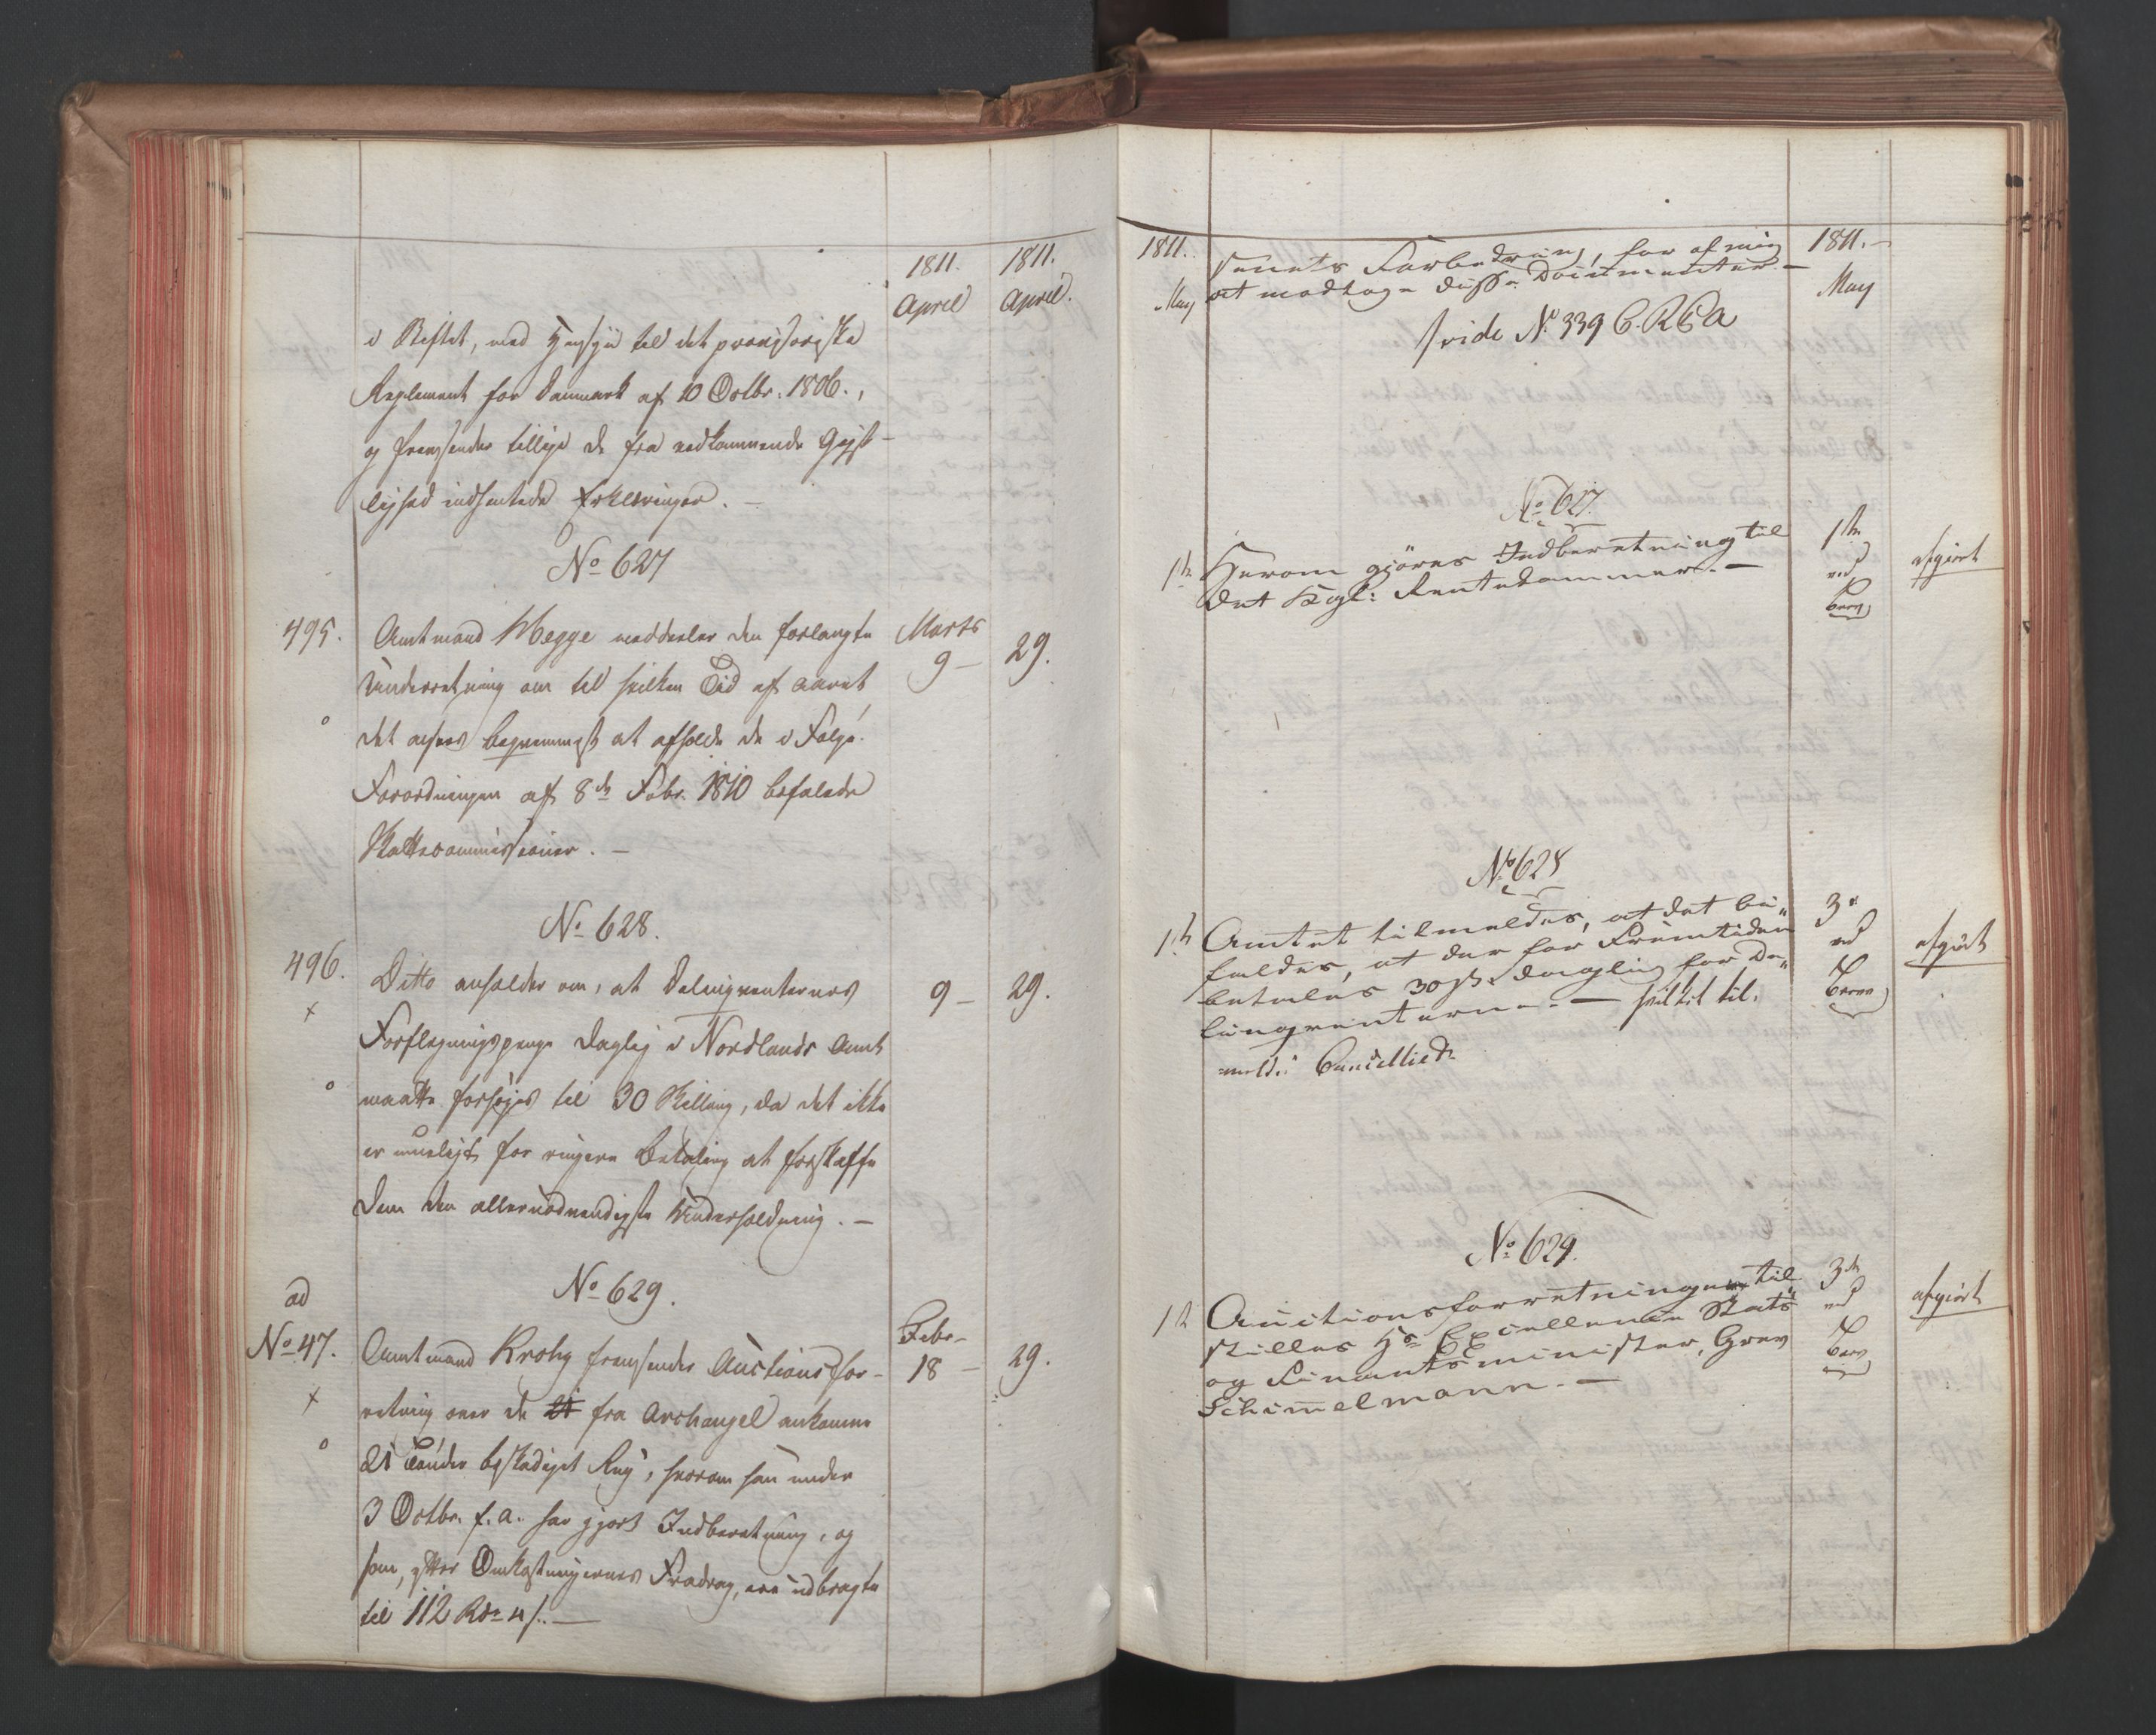 1811.
1811.
April
April.
i Stiftet, med Hensyn til det provisoriske
Reglement for Danmark af 10 Octbr. 1806.,
og fremsender tillige de fra vedkommende Gejst-
lighed indhentede Erklæringer. —
No 627
495.
Amtmand Hegge meddeler den forlangte
Marts
9 —
29.
Underretning om til hvilken Tid af Aaret
det ansees beqvemmest at afholde de i Følge
Forordningen af 8de Febr. 1810 befalede
Skattecommissioner. —
No 628.
496.
Ditto anholder om, at Delinqventernes
9 —
29.
Forflegningspenge daglig i Nordlands Amt
maatte forhøjes til 30 Skilling, da det ikke
er mueligt for ringere Betaling at forskaffe
dem den allernødvendigste Underholdning. —
No 629.
ad
No 47.
Amtmand Krohg fremsender Auctionsfor-
Febr.
18 —
29.
retning over de fra Archangel ankomne
21 Tønder beskadiget Rug, hvorom han under
3 Octbr. f. a. har gjort Indberetning, og
som, efter Omkostningernes Fradrag, ere udbragte
til 112 Rdr 4 s. —
1811.
May
1811.
May
senets Forbedring, har af mig
at modtage disse Documenter. —
vide No 339 C. R & A
No 627.
1te
Herom gjøres Indberetning til
det Kgl: Rentekammer. —
1te
ved
Brev
afgiort
No 628
1te
Amtet tilmeldes, at det bi„
faldes, at der for Fremtiden
betales 30 s. daglig for De„
linqventerne. — hvilket til„
meldes Cancelliet
3e
ved
2
Breve
afgiort
No 629.
1te
Auctionsforretningen til„
stilles Hs Excellence Stats
og Finantsminister, Grev
Schimelmann. —
3de
ved
Brev
afgiort